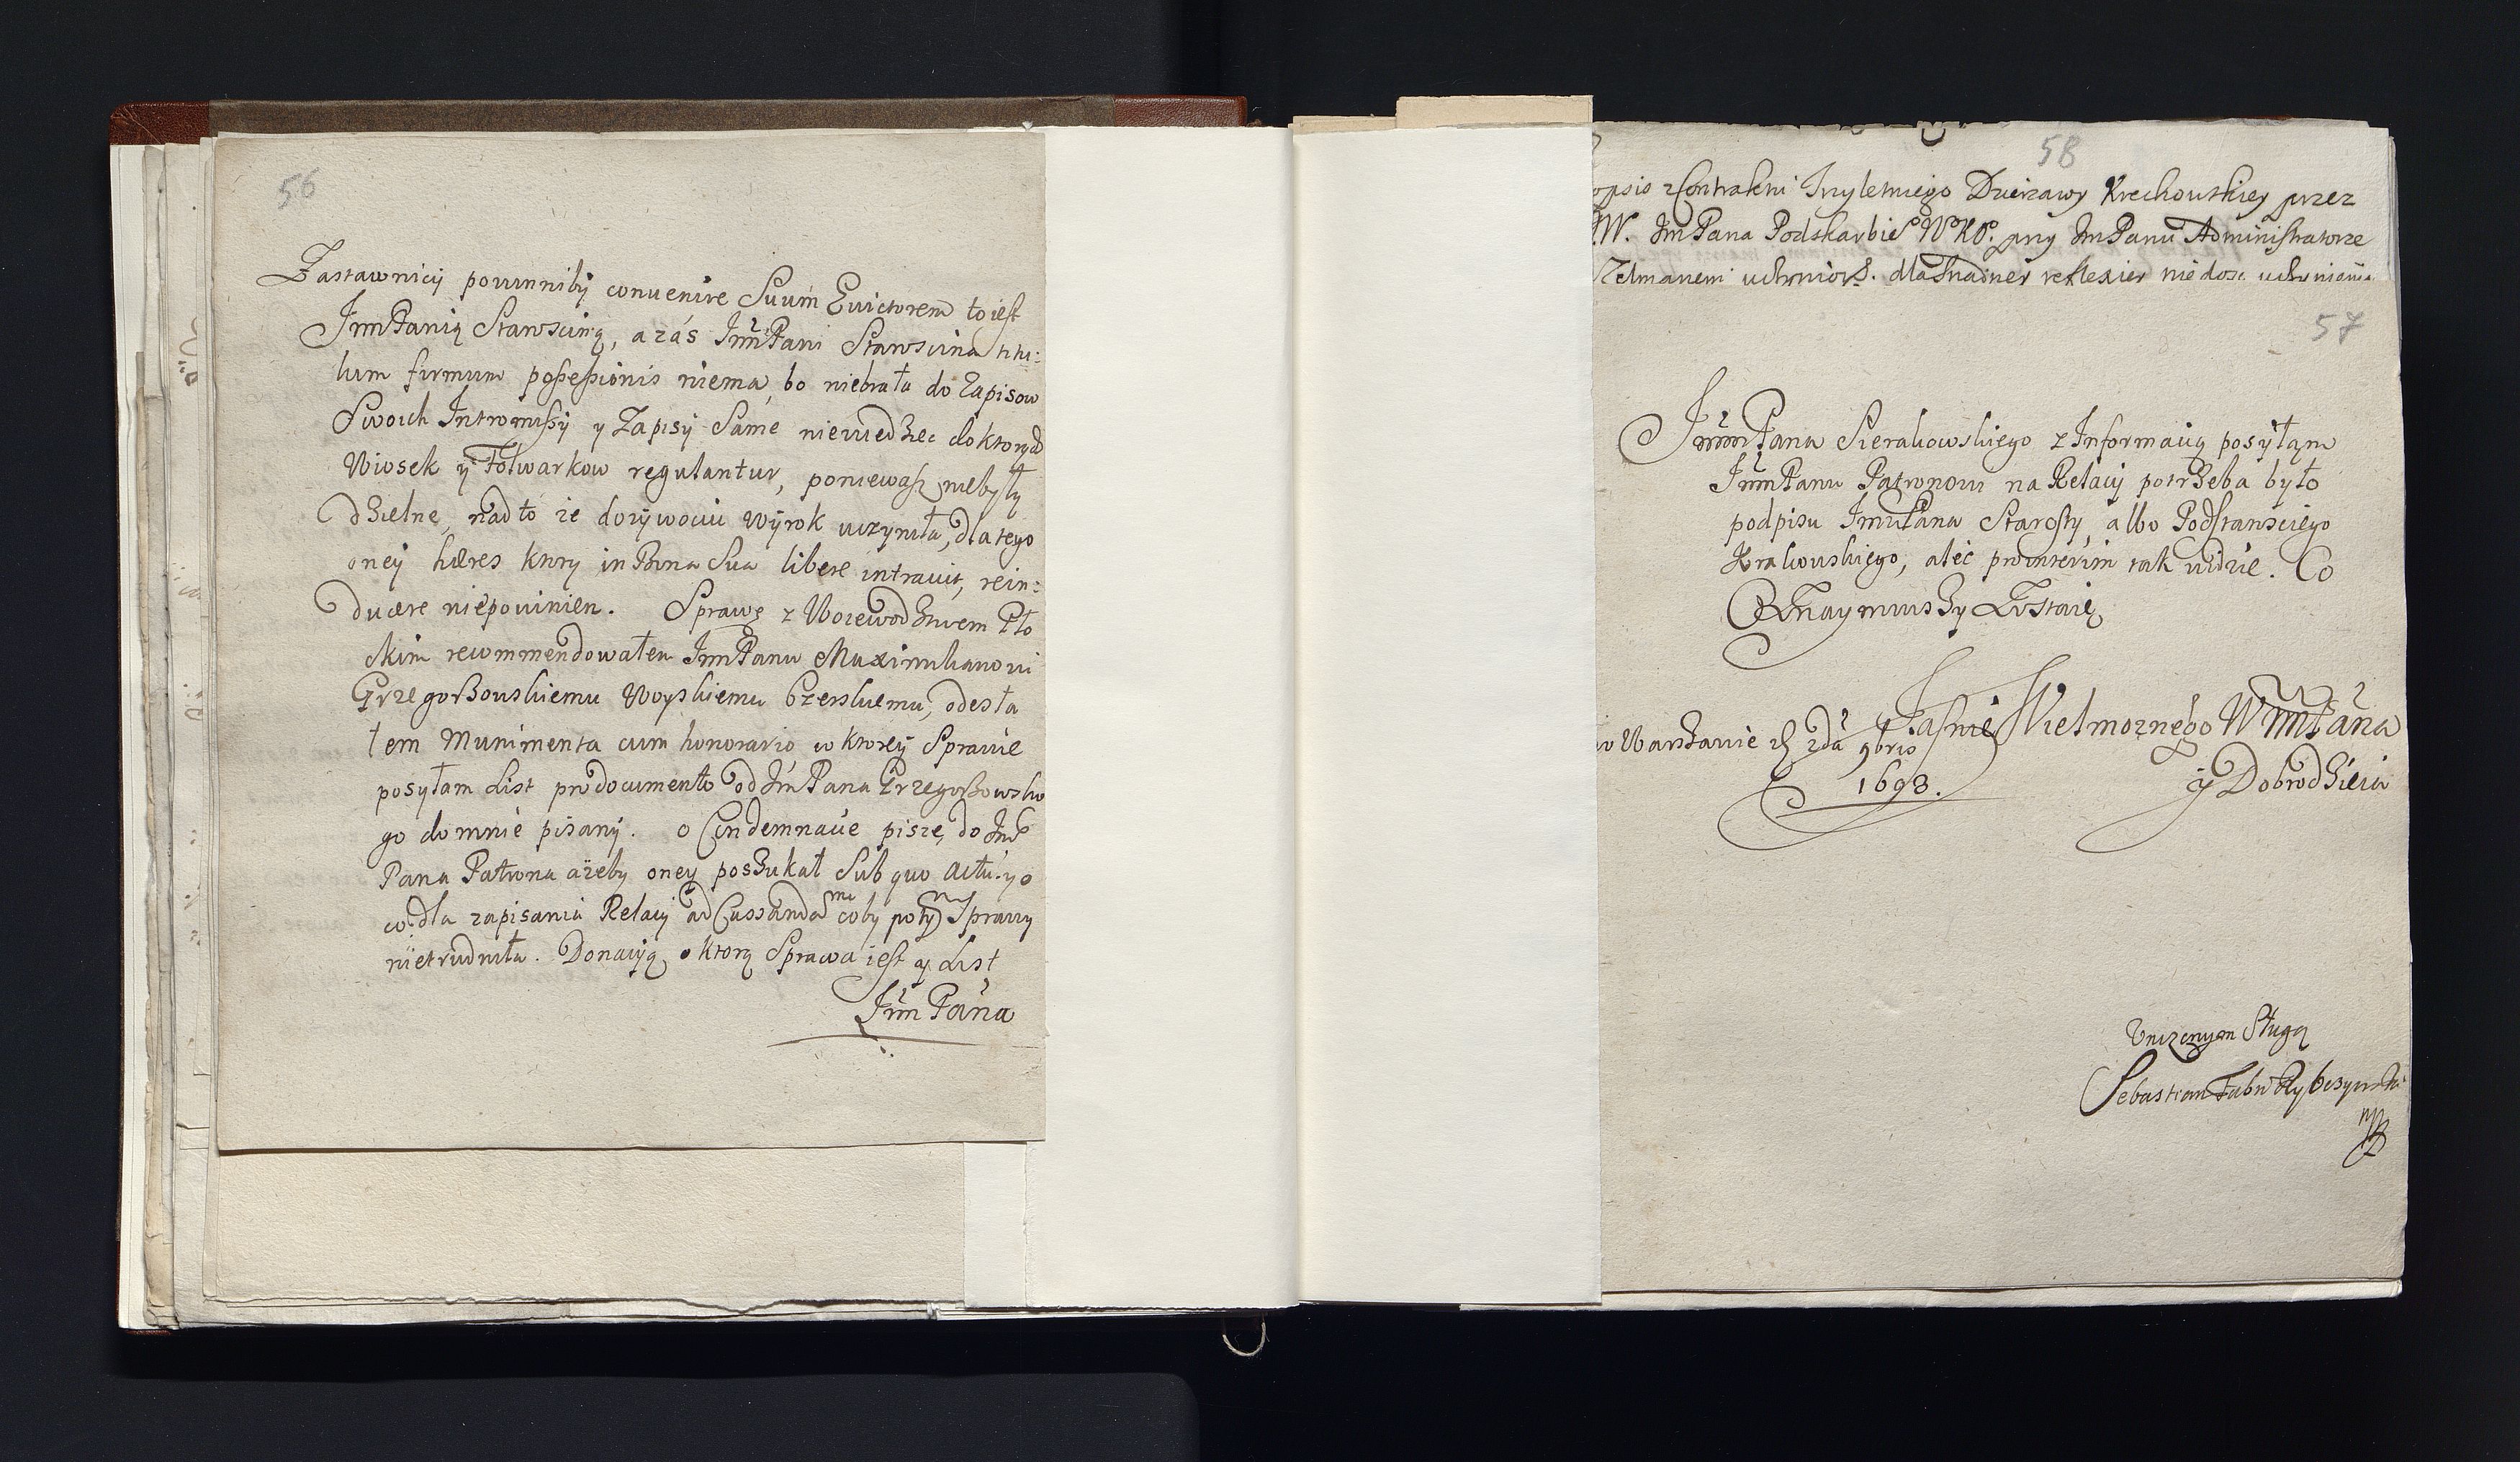 56
Zastawnicy powinniby convenire Suum Evictorem to iest
JmPanią Starościną, a zás JmPani Starościna titu:
lum firmum possessionis niema, bo niebrała do Zapisow
Swoich Intromissy y Zapisy Same niewiedzieć do ktorych
Wiosek y Folwarkow regulantur, poniewasz niebyły
dzielne, nadto że dożywociu wyrok uczyniła, dla tego
oney hæres ktory in Bona Sua libere intravit, rein:
ducere niepowinien. Sprawę z Woiewodztwem Pło
ckim recommendowałem JmPanu Maximilianowi
Grzegorzowskiemu Woyskiemu Czerskiemu, odesła
łem Munimenta cum honorario w ktorey Sprawie
posyłam List pro documento od JmPana Grzegorzowskie
go do mnie pisany. o Condemnacie piszę do Jm
Pana Patrona ażeby oney poszukał Sub quo actu y o
co dla zapisania Relacy ad Cassandam coby potym Sprawy
nietrudniła. Donacyą o ktorą Sprawa iest y List
Jm Pana
58
Kontraktu Trzyletniego Dzierzawy Krechowskiey przez
JW. JmPana Podskarbie WKO. przy JmPanu Administratorze
Zelmanem uczynio. dla snadney reflexiey niedosc uczynienia
57
JmPana Sierakowskiego z Informacyą posyłąm
JmPanu Patronowi na Relacy potrzeba było
podpisu JmPana Starosty, albo Podstarościego
Krakowskiego, aleć pro interim tak uidzie. Co
Oznaymuszy Zostaię
Jasnie Wielmoznego WMPana
w Warszawie d 2da 9bris
1693.
y Dobrodzieia
Unizonym Sługą
Sebastian Rybczynski
mp